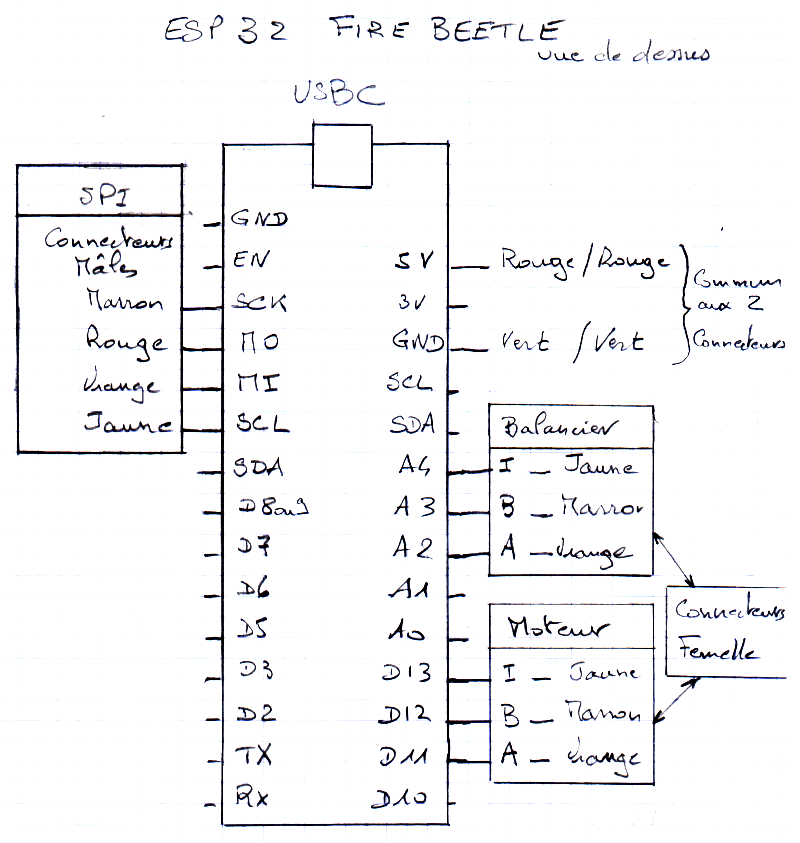 ESP 32 FIRE BEETLE
vue de dessus
USBC
SPI
Connecteurs
Mâles
Marron
Rouge
Orange
Jaune
GND
EN
SCK
MO
MI
SCL
SDA
D8ou9
D7
D6
D5
D3
D2
TX
Rx
5V
3V
GND
SCL
SDA
A4
A3
A2
A1
A0
D13
D12
D11
D10
Rouge / Rouge
Vert / Vert
Commun
aux 2
Connecteurs
Balancier
I - Jaune
B - Marron
A - Orange
Moteur
I - Jaune
B - Marron
A - Orange
Connecteurs
Femelle